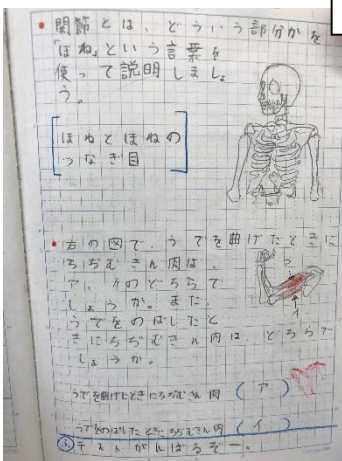 • 関節とは、どういう部分かを
「ほね」という言葉を
使って説明しましょ
う。
ほねとほねの
つなぎ目
• 右の図で、うでを曲げたときに
ちぢむきん肉は、
ア、イのどちらで
しょうか。また、
うでをのばしたと
きにちぢむきん肉は、どちらで
しょうか。
ア
イ
うでを曲げたときにちぢむきん肉 ( ア )
うでをのばしたときにちぢむきん肉 ( イ )
テストがんばるぞー。